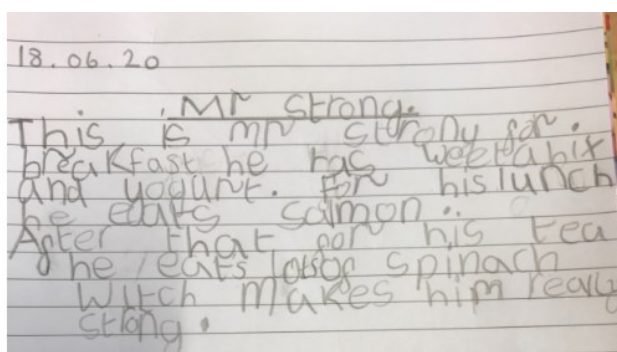 18.06.20
Mr Strong.
This is mr strony for.
breakfast he has weetabix
and yogurt. For his lunch
he eats salmon..
After that for his tea
he eats lotsof spinach
witch makes him realy
stong.